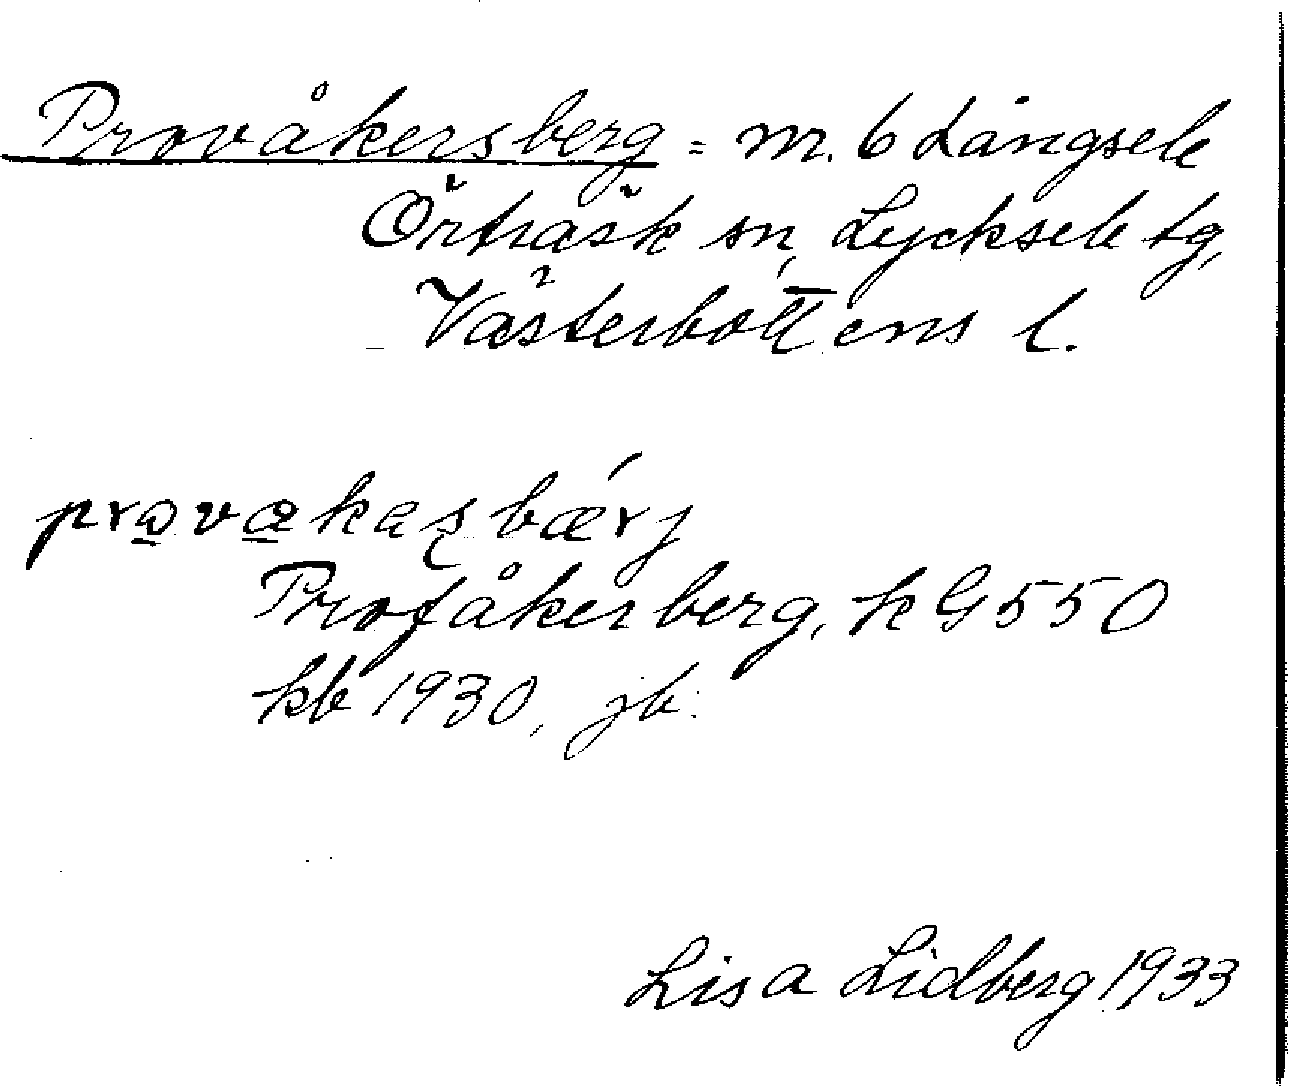 Provåkersberg = nr. 6 Långsele
Örträsk sn, Lycksele tg,
Västerbottens l.
provakaʂbǽrj
Profåkerberg, k G 550
kb 1930, jb.
Lisa Lidberg 1933